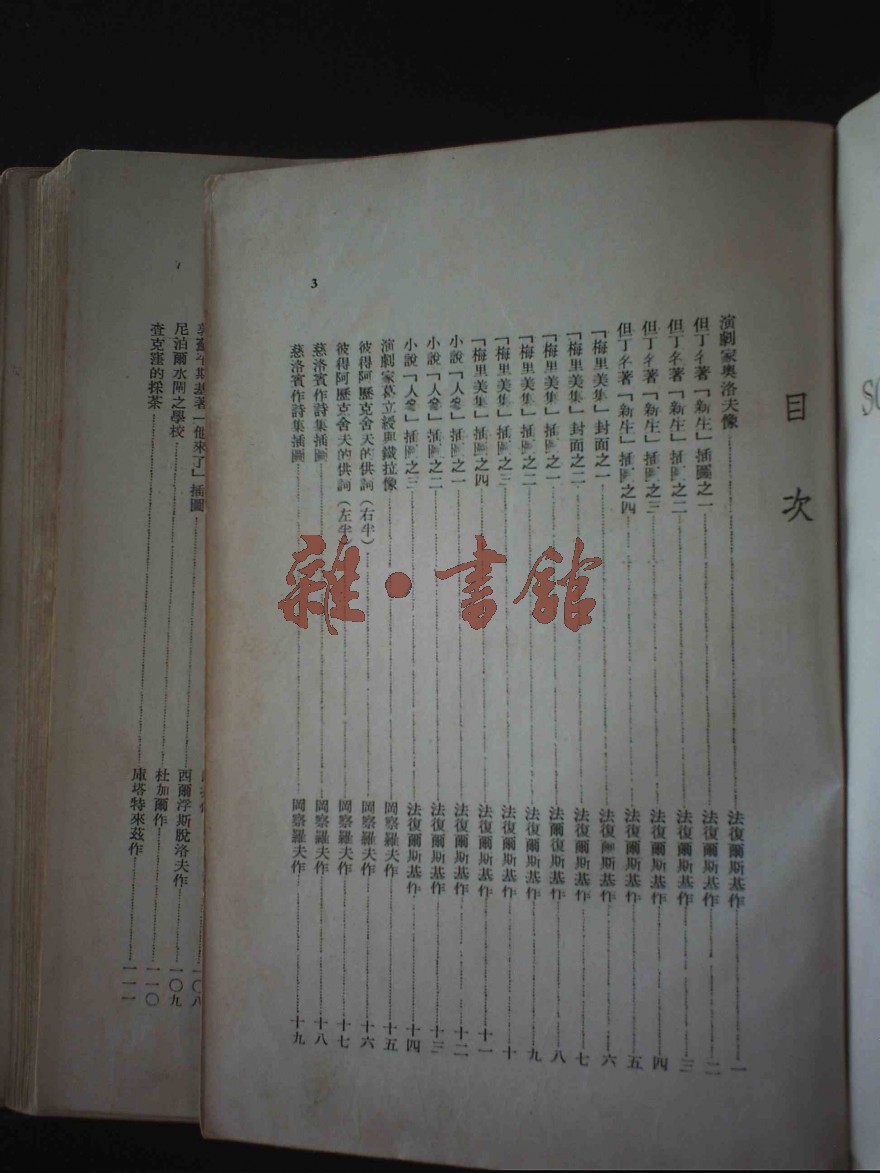 SO
目次
演劇家奧洛夫像 法復爾斯基作 一
但丁作著「新生」插圖之一 法復爾斯基作 二
但丁作著「新生」插圖之二 法復爾斯基作 三
但丁作著「新生」插圖之三 法復爾斯基作 四
但丁作著「新生」插圖之四 法復爾斯基作 五
「梅里美集」封面之一 法復爾斯基作 六
「梅里美集」封面之二 法復爾斯基作 七
「梅里美集」插圖之一 法爾復斯基作 八
「梅里美集」插圖之二 法復爾斯基作 九
「梅里美集」插圖之三 法復爾斯基作 十
「梅里美集」插圖之四 法復爾斯基作 十一
小說「人參」插圖之一 法復爾斯基作 十二
小說「人參」插圖之二 法復爾斯基作 十三
小說「人參」插圖之三 法復爾斯基作 十四
演劇家葛立綬與鐵拉像 岡察羅夫作 十五
彼得阿歷克舍夭的供詞(右半) 岡察羅夫作 十六
彼得阿歷克舍夭的供詞(左半) 岡察羅夫作 十七
慈洛賓作詩集插圖 岡察羅夫作 十八
慈洛賓作詩集插圖 岡察羅夫作 十九
3
一〇八
著「他來了」插圖 西爾浮斯脫洛夫作 一〇九
尼泊爾水閘之學校 杜加爾作 一一〇
查克窪的採茶 庫塔特來茲作 一一一
7
雜·書館